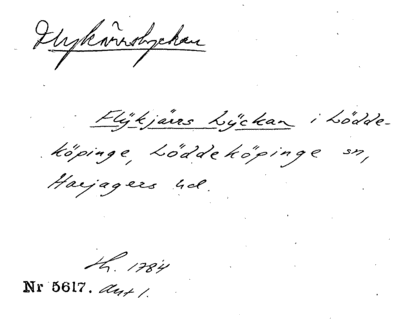 Flykärrslyckan
Flÿkjärrs Lÿckan i Lödde-
köpinge, Löddeköpinge sn,
Harjagers hd.
Lh. 1784
Nr 5617. Ant 1.